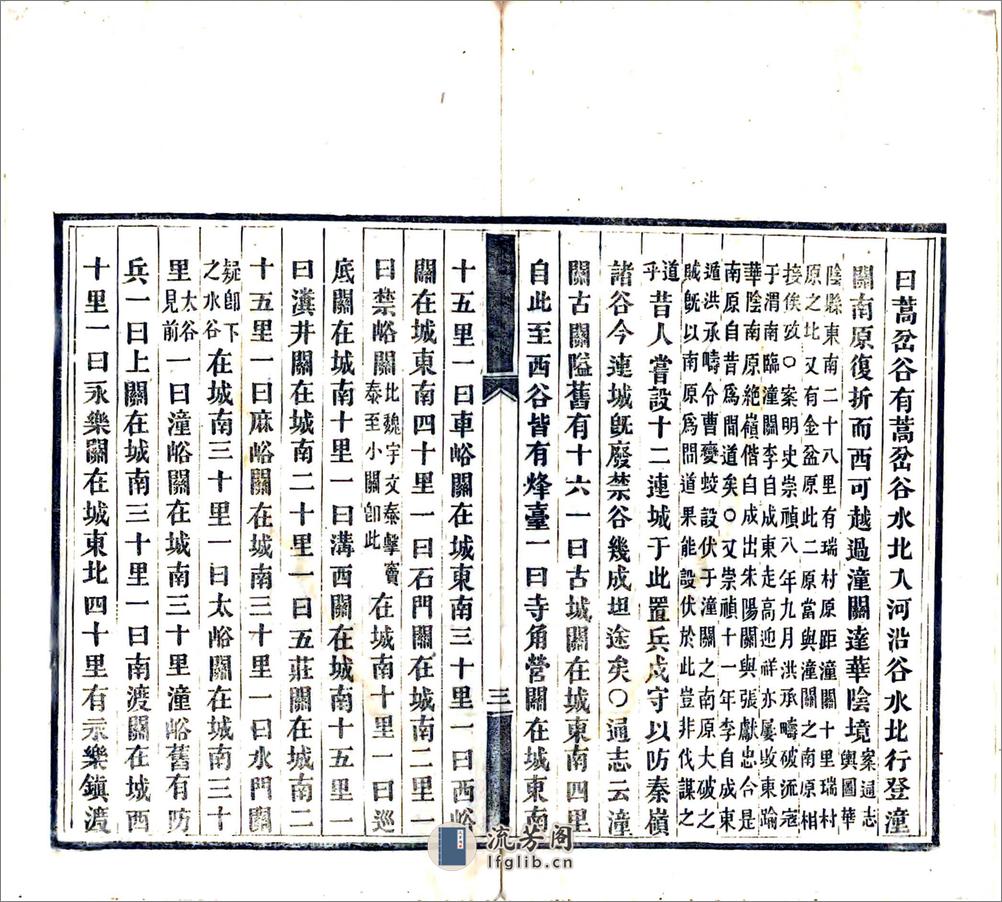 曰蒿岔谷有蒿岔谷水北入河沿谷水北行登潼
關南原復折而西可越過潼關達華陰境案通志輿圖華
陰縣東南二十八里有瑞村原距潼關十里瑞村
原之北又有金盆原此二原當與潼關之南原相
接俟攷○案明史崇禎八年九月洪承疇破流寇
于渭南臨潼關李自成東走高迎祥亦屢敗東踰
華陰南原絕嶺偕自成出朱陽關與張獻忠合是
南原自昔爲間道矣○又崇禎十一年李自成東
遁洪承疇令曹變蛟設伏于潼關之南原大破之
賊既以南原爲間道果能設伏於此豈非伐謀之
道乎昔人嘗設十二連城于此置兵戍守以防秦嶺
諸谷今連城既廢禁谷幾成坦途矣○通志云潼
關古關隘舊有十六一曰古城關在城東南四里
自此至西谷皆有烽臺一曰寺角營關在城東南
三
十五里一曰車峪關在城東南三十里一曰西峪
關在城東南四十里一曰石門關在城南二里一
曰禁峪關北魏宇文泰擊竇泰至小關卽此在城南十里一曰巡
底關在城南十里一曰溝西關在城南十五里一
曰㵐井關在城南二十里一曰五莊關在城南二
十五里一曰麻峪關在城南三十里一曰水門關
疑卽下之水谷在城南三十里一曰太峪關在城南三十
里太谷見前一曰潼峪關在城南三十里潼峪舊有防
兵一曰上關在城南三十里一曰南渡關在城西
十里一曰永樂關在城東北四十里有永樂鎮渡
流芳阁
lfglib.cn